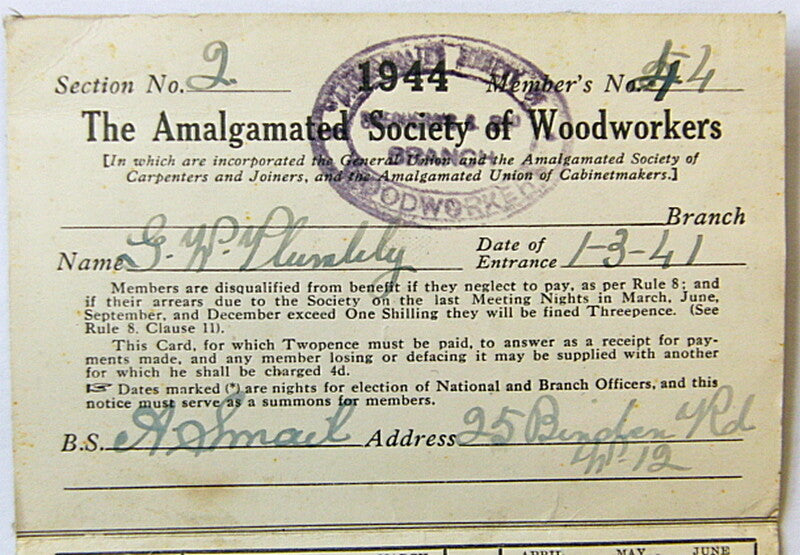 Section No. 2 1944 Member's No. 44
The Amalgamated Society of Woodworkers
[In which are incorporated the General Union and the Amalgamated Society of
Carpenters and Joiners, and the Amalgamated Union of Cabinetmakers.]
BRANCH
WOODWORKERS
Branch
Name G. W. Plumbly Date of Entrance 1-3-41
Members are disqualified from benefit if they neglect to pay, as per Rule 8; and
if their arrears due to the Society on the last Meeting Nights in March, June,
September, and December exceed One Shilling they will be fined Threepence. (See
Rule 8, Clause 11).
This Card, for which Twopence must be paid, to answer as a receipt for pay-
ments made, and any member losing or defacing it may be supplied with another
for which he shall be charged 4d.
☞ Dates marked (*) are nights for election of National and Branch Officers, and this
notice must serve as a summons for members.
B.S. A Smail Address 25 Binden Rd
W-12
MARCH APRIL MAY JUNE